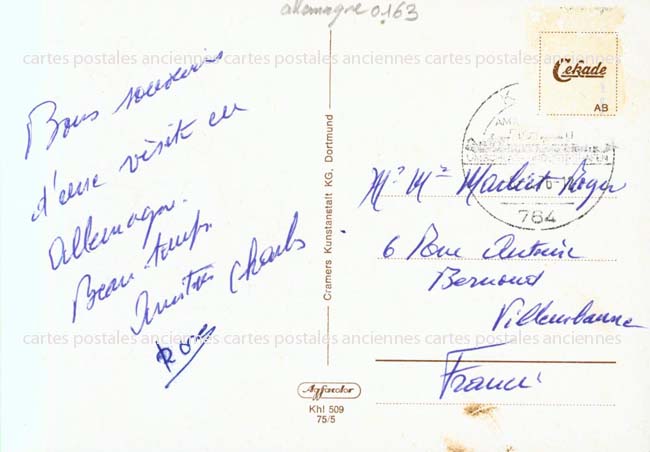 allemagne 0163
cartes postales anciennes cartes postales anciennes cartes postales anciennes
Bons souvenirs
d'une visite en
Allemagne.
Beau temps
Amitiés Charles
Rose
Cramers Kunstanstalt KG. Dortmund
Cekade
AB
764
Mr Me Roger
6 Rue Antoine
Bernoud
Villeurbanne
France
cartes postales anciennes cartes postales anciennes cartes postales anciennes
Agfacolor
Khl 509
75/5